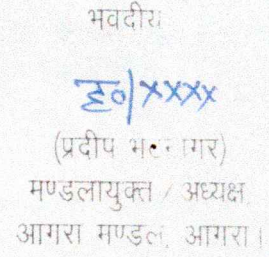 भवदीय
ह०/xxxx
(प्रदीप भटनागर)
मण्डलायुक्त / अध्यक्ष,
आगरा मण्डल, आगरा।